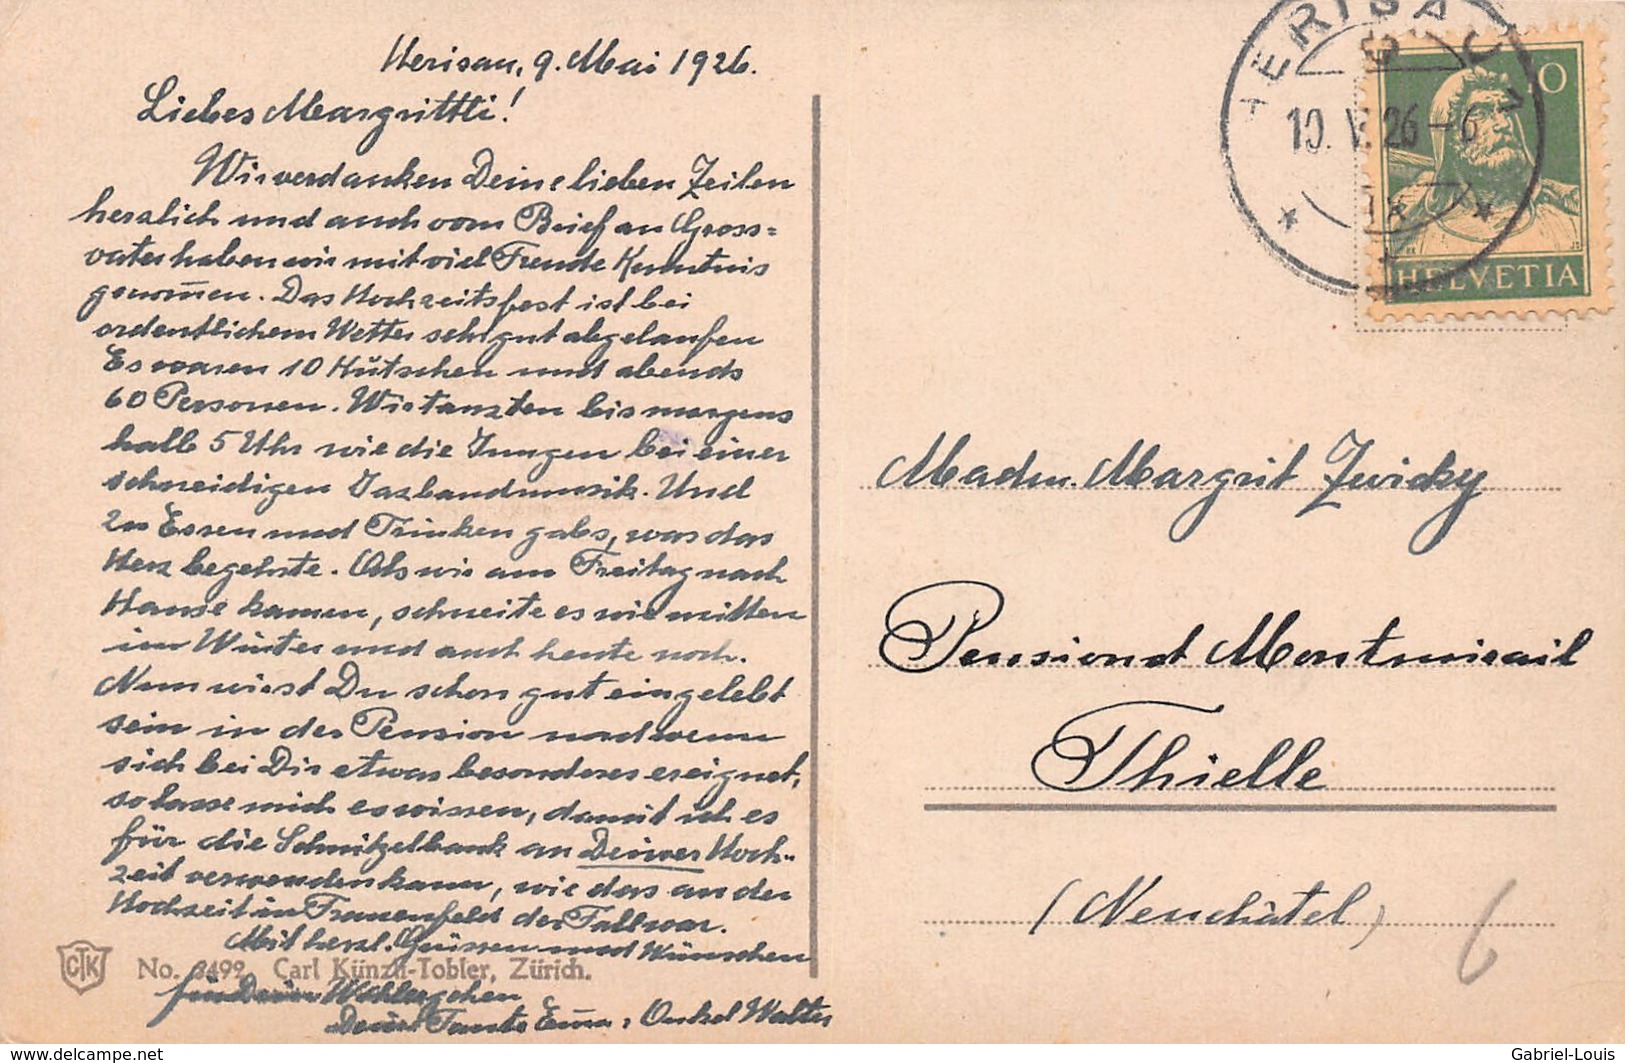 Herisau, 9. Mai 1926.
Liebes Margrittli!
Wir verdanken Deine lieben Zeilen
herzlich und auch vom Brief an Gross=
vater haben wir mit viel Freude Kenntnis
genom̅en. Das Hochzeitsfest ist bei
ordentlichem Wetter sehr gut abgelaufen
Es waren 10 Kutschen und abends
60 Personen. Wir tanzten bis morgens
halb 5 Uhr wie die Jungen bei einer
schneidigen Jazbandmusik. Und
zu Essen und Trinken gabs, was das
Herz begehrte. Als wir am Freitag nach
Hause kamen, schneite es wie mitten
im Winter und auch heute noch.
Nun wirst Du schon gut eingelebt
sein in der Pension und wenn
sich bei Dir etwas besonderes ereignet,
so lasse mich es wissen, damit ich es
für die Schnitzelbank an Deiner Hoch-
zeit verwenden kann, wie das an der
Hochzeit in Frauenfeld der Fall war.
Mit herzl. Grüssen und Wünschen
für Dein Wohlergehen
Deine Tante Em̅a, Onkel Walter
CTK No. 3492 Carl Künzli-Tobler, Zürich.
HERISAU
10. V. 26 - 6
10
HELVETIA
Madm. Margrit Zwicky
Pensionat Montmirail
Thielle
(Neuchâtel)
6
www.delcampe.net
Gabriel-Louis